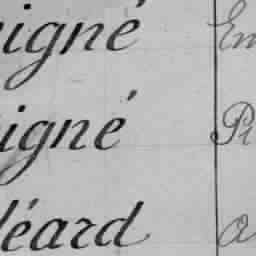 igné Em
igné Pi
léard a